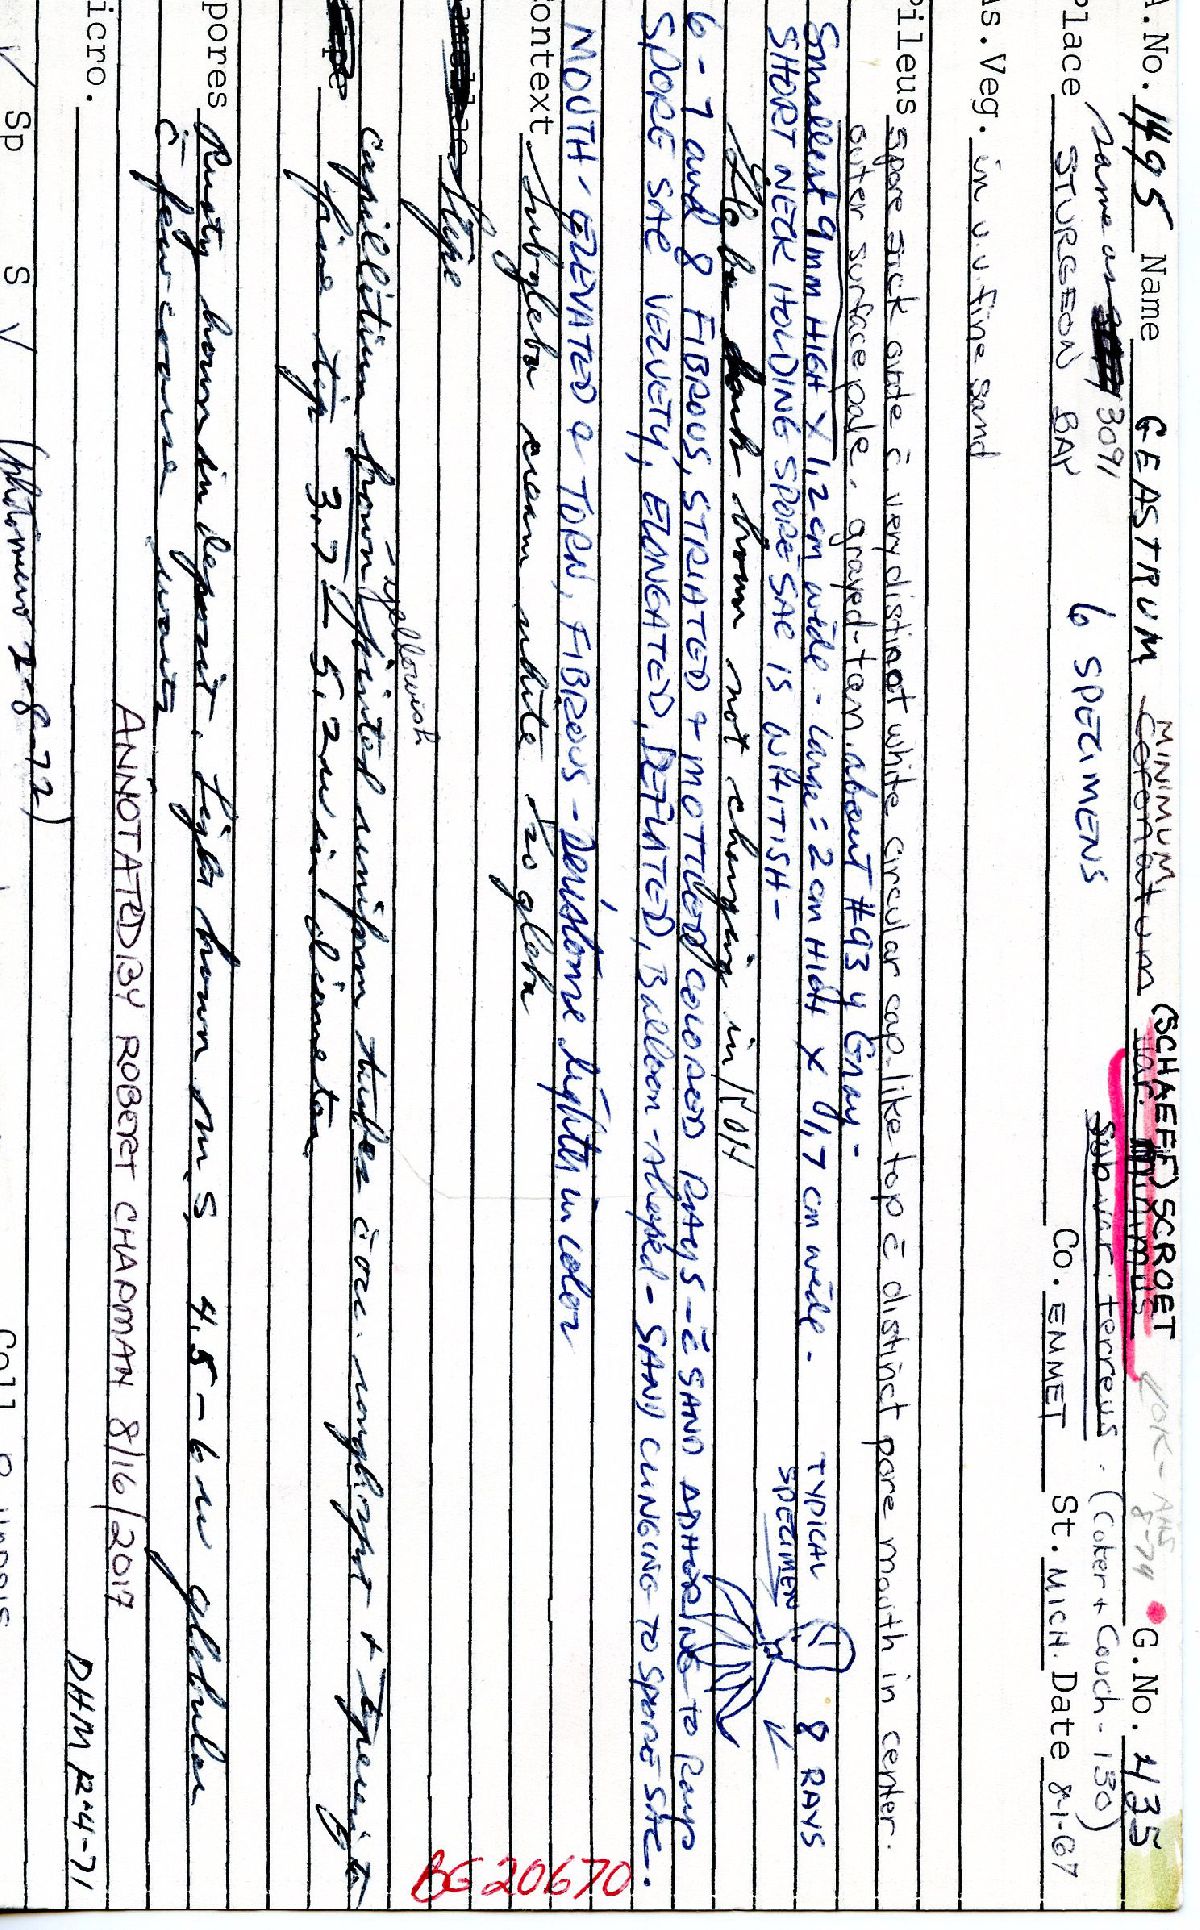 A.No. 1495 Name GEASTRUM MINIMUM (SCHAEFF) SCROET G.No. 435
Coronatum var. minimus OK - AHS 8-74
subvar. terreus. (Coker + Couch - 130)
same as 3091
Place STURGEON BAY 6 SPECIMENS Co. EMMET St. MICH. Date 8-1-67
As.Veg. in v.v. fine sand
Pileus spore sack ovate c̄ very distinct white circular cap-like top c̄ distinct pore mouth in center.
outer surface pale, grayed-tan. about #93 y Gray-
Smallest 9mm HIGH X 1,2 cm wide - Large = 2 cm HIGH X 1,7 cm wide - TYPICAL 8 RAYS
SHORT NECK HOLDING SPORE SAC IS WHITISH - SPECIMEN
Gleba dark brown not changing in KOH
6-7 and 8 FIBROUS, STRIATED & MOTTLED COLORED RAYS - c̄ SAND ADHORING TO RAYS
SPORE SAC VELVETY, ELONGATED, DEFLATED, Balloon-shaped - SAND CLINGING TO SPORE SAC.
MOUTH - ELEVATED & TORN, FIBROUS - Peristome lighter in color
Context Subgleba cream white to gleba
Stipe
yellowish
capillitium brown tinted uniform tubes c̄ occ. roughspt + tapering to
fine tip 3.7 - 5.2 u in diameter
Spores Rusty brown in deposit. Light brown m S 4.5-6 u globular
c̄ few coarse warts
ANNOTATED BY ROBERT CHAPMAN 8/16/2017
Micro.
DHM 12-4-71
V Sp S V (photomicro 2-8-72)
BG 20670